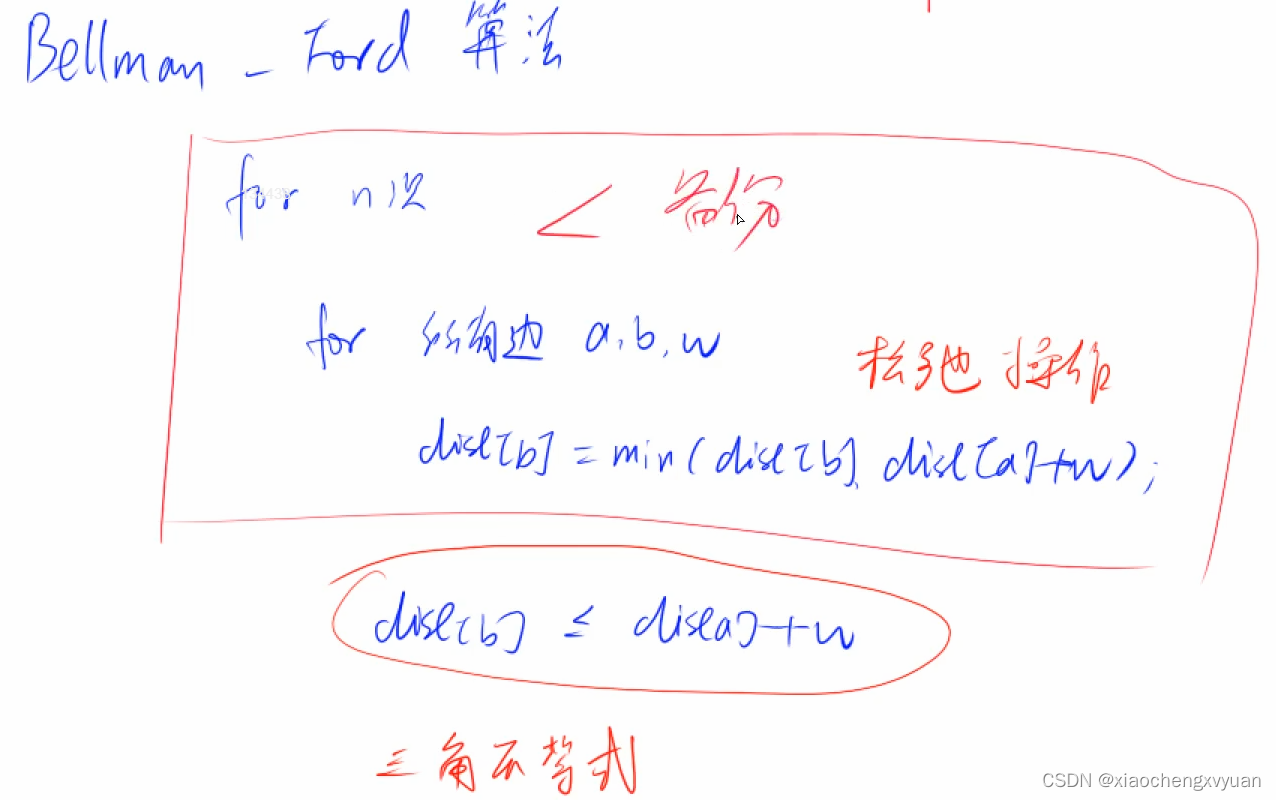 Bellman - Ford 算法
for n次 < 备份
for 所有边 a,b,w
松弛操作
dist[b] = min(dist[b], dist[a]+w);
dist[b] ≤ dist[a]+w
三角不等式
CSDN @xiaochengxvyuan